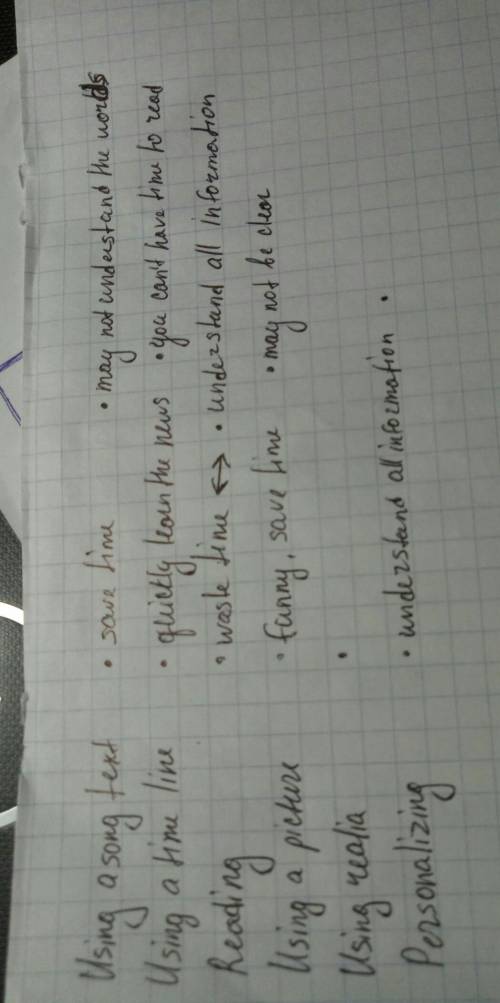 Using a song text • save time • may not understand the words
Using a time line • quickly learn the news • you can't have time to read
Reading • waste time ↔ • understand all information
Using a picture • funny, save time • may not be clear
Using realia •
Personalizing • understand all information •